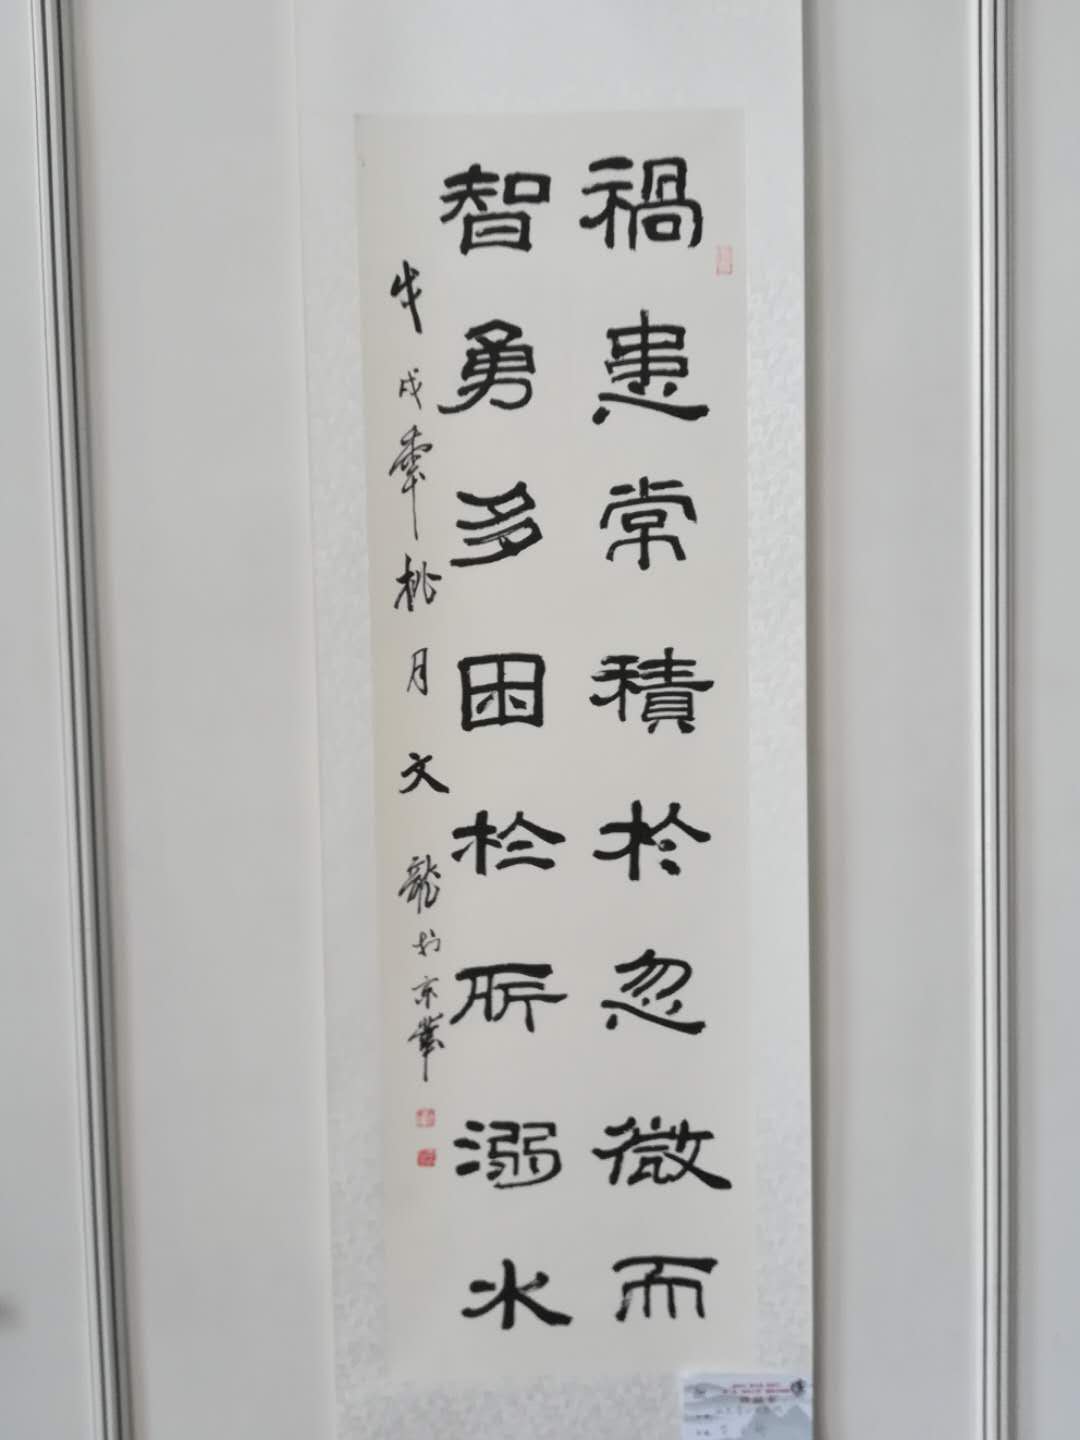 禍患常積於忽微而
智勇多困於所溺水
戊戌年桃月文龍於京華